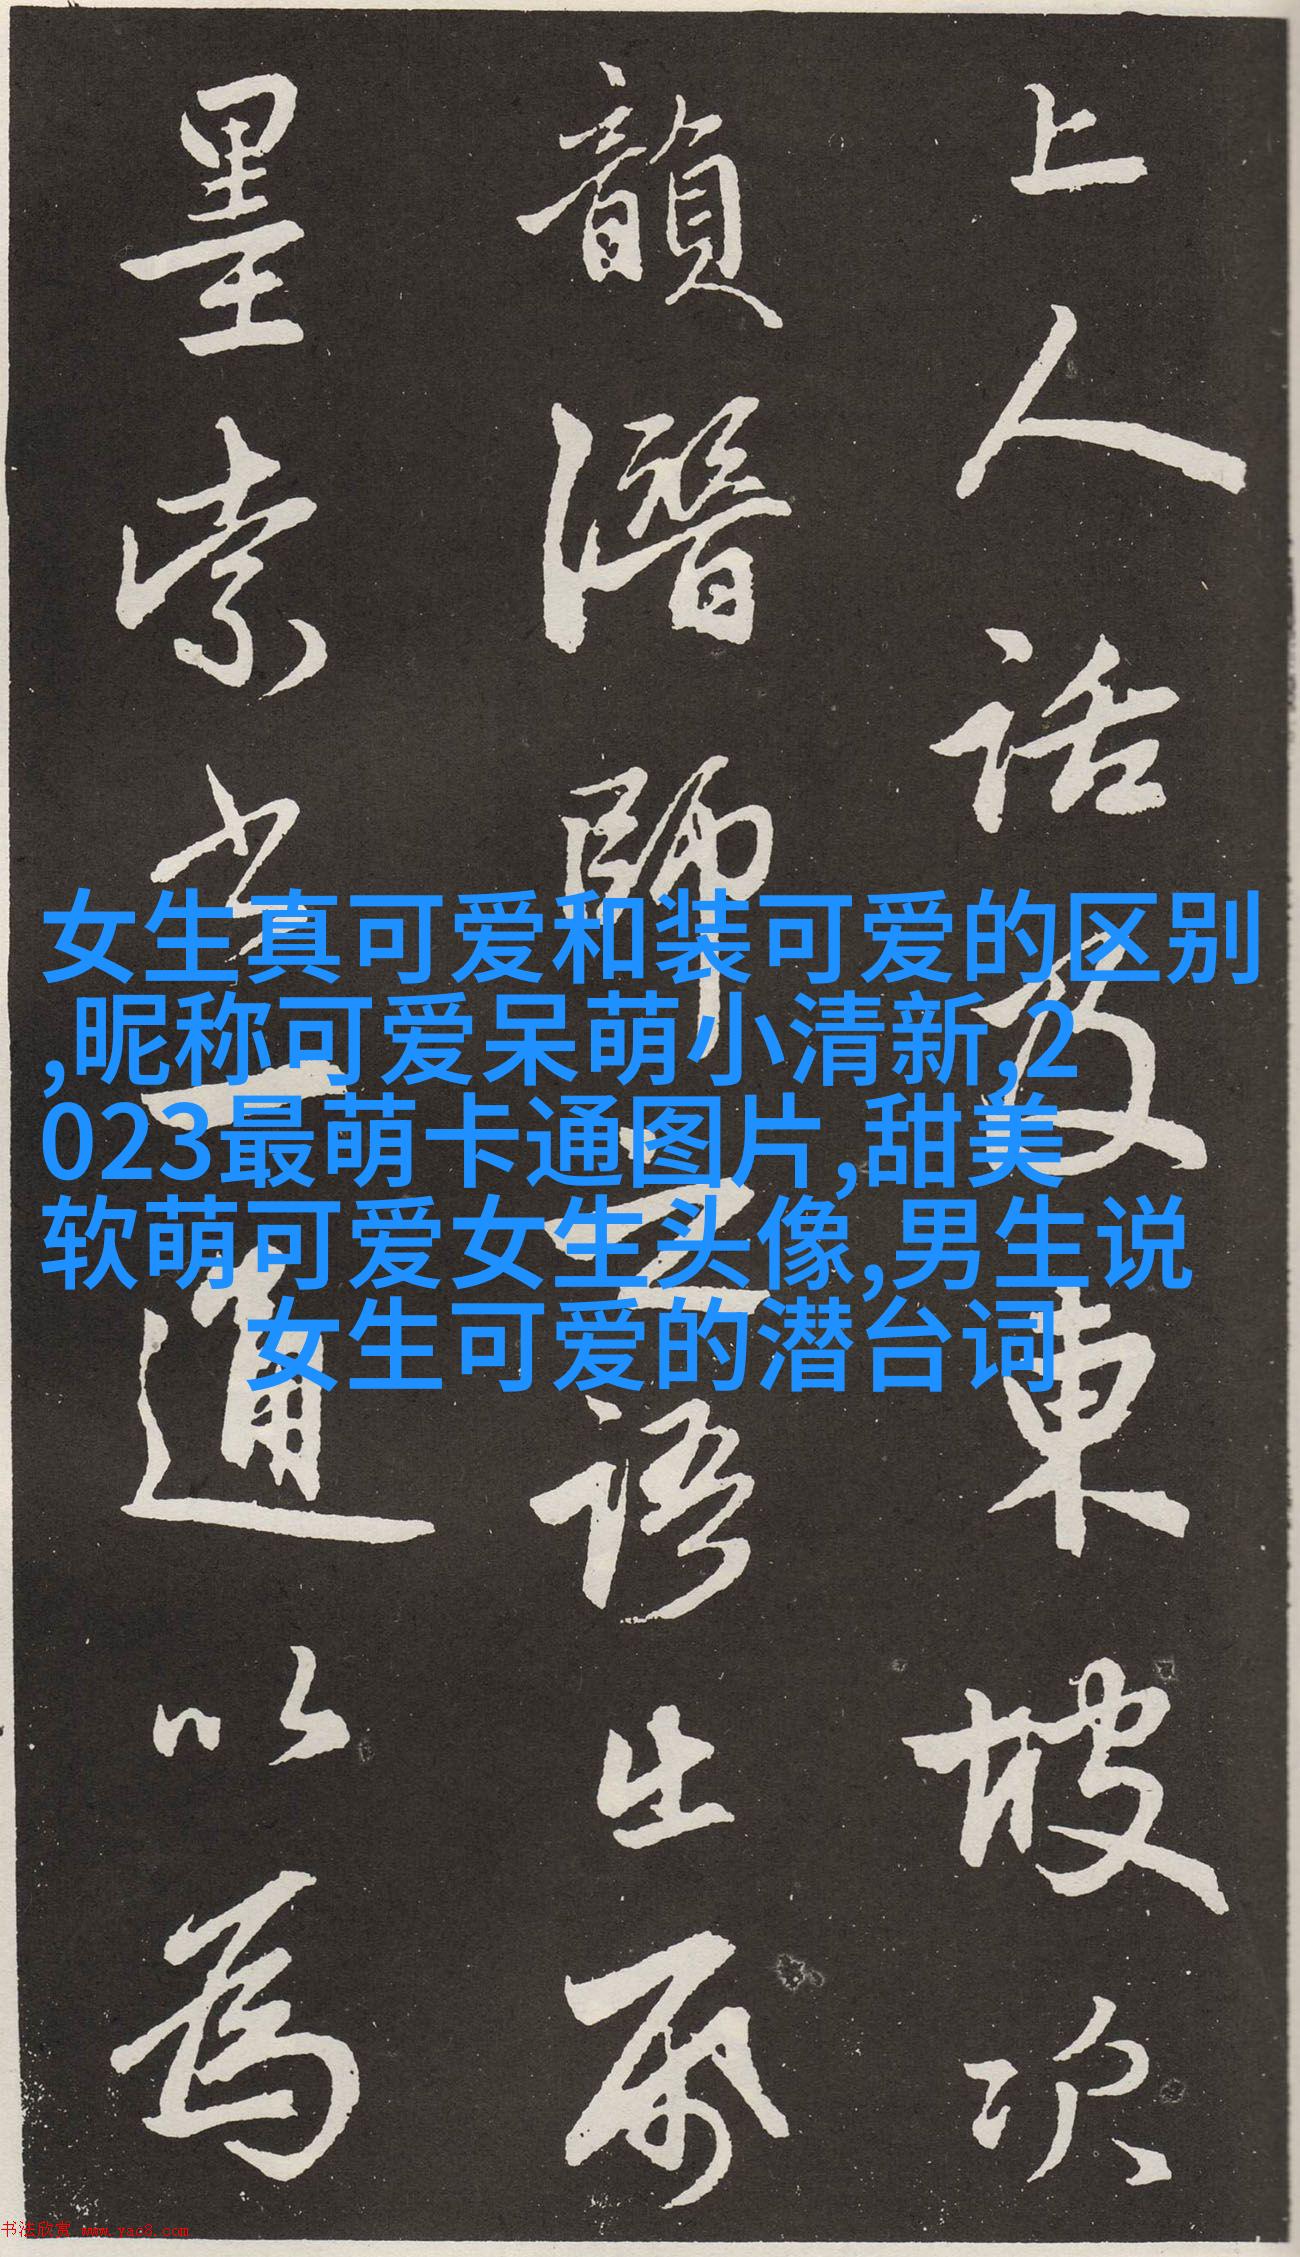 上人話及東坡次
韻潛師之語出
墨索一通以為
女生真可爱和装可爱的区别
,昵称可爱呆萌小清新,2
023最萌卡通图片,甜美
软萌可爱女生头像,男生说
女生可爱的潜台词
书法欣赏 www.yac8.com